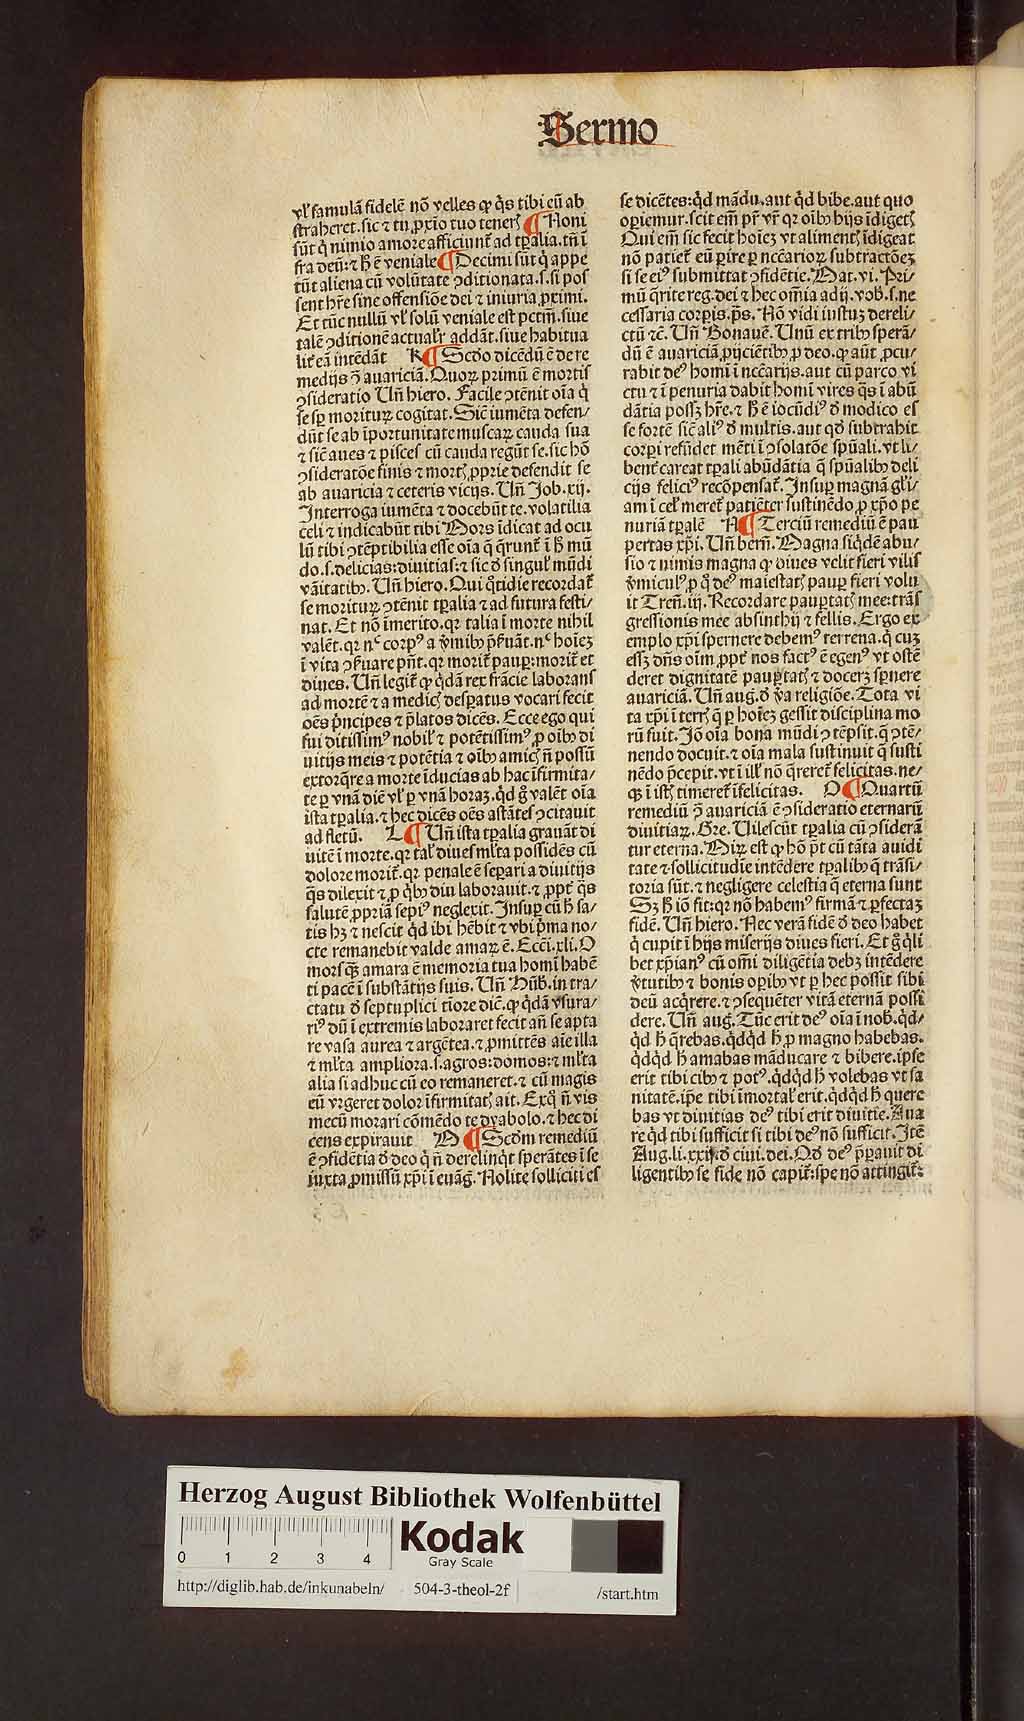 Sermo
vl' famulā fidelē nō velles ꝙ q̇s tibi eū ab
straheret. sic ⁊ tu ꝓxīo tuo tenerꝭ ¶ Noni
sūt q̇ nimio amore afficiunt᷑ ad tꝑalia. tn̄ ī
fra deū: ⁊ h̄ ē veniale ¶ Decimi sūt q̇ appe
tūt aliena cū volūtate ꝯditionata. s. si pos
sent hr̄e sine offensiōe dei ⁊ iniuria ꝓximi.
Et tūc nullū vl' solū veniale est pctm̄. siue
talē ꝯditionē actual'r addāt. siue habitua
lit᷑ eā intēdāt K ¶ Scdo dicēdū ē de re
medijs ꝯ̄ auariciā. Quoꝝ primū ē mortis
ꝯsideratio Un̄ hiero. Facile ꝯtēnit oīa q̇
se sꝑ morituꝝ cogitat. Sic̄ iumēta defen/
dūt se ab īportunitate muscaꝝ cauda sua
⁊ sic̄ aues ⁊ pisces cū cauda regūt se. sic hō
ꝯsideratōe finis ⁊ mortꝭ ꝓprie defendit se
ab auaricia ⁊ ceteris vicijs. Un̄ Job. xij.
Interroga iumēta ⁊ docebūt te. volatilia
celi ⁊ indicabūt tibi Mors īdicat ad ocu
lū tibi ꝯtēptibilia esse oīa q̄ q̄runt᷑ ī h̄ mū
do. s. delicias: diuitias: ⁊ sic ď singul' mūdi
vāitatibꝫ. Un̄ hiero. Qui q̇tidie recordat᷑
se morituꝝ ꝯtēnit tꝑalia ⁊ ad futura festi/
nat. Et nō īmerito. qꝛ talia ī morte nihil
valēt. qꝛ nᶜ corpꝰ a v̄mibꝫ p̄ẜuāt. nᶜ hoīeꝫ
ī vita ꝯẜuare pn̄t. qꝛ morit᷑ pauꝑ: morit᷑ et
diues. Un̄ legit᷑ ꝙ q̇dā rex frācie laborans
ad mortē ⁊ a medicꝭ desꝑatus vocari fecit
oēs p̄ncipes ⁊ p̄latos dicēs. Ecce ego qui
fui ditissimꝰ nobil' ⁊ potētissimꝰ, ꝓ oībꝫ di
uitijs meis ⁊ potētia ⁊ oībꝫ amicꝭ n̄ possū
extorq̄re a morte īducias ab hac īfirmita/
te ꝑ vnā diē vl' ꝑ vnā horaꝫ. q̇d g̊ valēt oīa
ista tꝑalia. ⁊ hec dicēs oēs astātes ꝯcitauit
ad fletū. L ¶ Un̄ ista tꝑalia grauāt di
uitē ī morte. qꝛ tal' diues ml'ta possidēs cū
dolore morit᷑. qꝛ penale ē seꝑari a diuitijs
q̄s dilexit ⁊ ꝓ q̇bꝫ diu laborauit. ⁊ ꝓpt᷑ q̄s
salutē ꝓpriā sepiꝰ neglexit. Insuꝑ cū h̄ sa/
tis hꝫ ⁊ nescit q̇d ibi hēbit ⁊ vbi p̄ma no/
cte remanebit valde amaꝝ ē. Ecc̄i. xli. O
mors q̄ꝫ amara ē memoria tua homī habē
ti pacē ī substātijs suis. Un̄ Hūb. in tra/
ctatu ď septuplici tīore dic̄. ꝙ q̇dā vsura/
riꝰ dū ī extremis laboraret fecit an̄ se apta
re vasa aurea ⁊ argētea. ⁊ ꝓmittēs aīe illa
⁊ ml'ta ampliora. s. agros: domos: ⁊ ml'ta
alia si adhuc cū eo remaneret. ⁊ cū magis
eū vrgeret dolor īfirmitatꝭ ait. Exq̊ n̄ vis
mecū morari cōmēdo te dyabolo. ⁊ hec di
cens expirauit M ¶ Scdm remediū
ē ꝯfidētia ď deo q̇ n̄ derelinq̇t sperātes ī se
iuxta ꝓmissū xp̄i ī euāg. Nolite solliciti es
se dicētes: q̇d mādu. aut q̇d bibe. aut quo
oꝑiemur. scit em̄ pr̄ vr̄ qꝛ oībꝫ hijs īdigetꝭ
Qui em̄ sic fecit hoīeꝫ vt alimentꝭ īdigeat
nō patiet᷑ eū ꝑire ꝑ nc̄carioꝝ subtractōeꝫ
si se eiꝰ submittat ꝯfidētie. Mat. vi. Pri/
mū q̄rite reg. dei ⁊ hec om̄ia adij. vob. s. ne
cessaria corpis. p̄s. Nō vidi iustuꝫ dereli/
ctū ⁊c̄. Un̄ Bonauē. Unū ex tribꝫ sperā/
dū ē auariciā ꝓijciētibꝫ ꝓ deo. ꝙ aūt ꝓcu/
rabit deꝰ homī ī nc̄carijs. aut cū parco vi
ctu ⁊ ī penuria dabit homī vires q̄s ī abū
dātia possꝫ hr̄e. ⁊ h̄ ē iocūdiꝰ ď modico es
se fortē sic̄ aliꝰ ď multis. aut qď subtrahit
corpi refūdet mēti ī ꝯsolatōe spūali. vt li/
bent᷑ careat tꝑali abūdātia q̄ spūalibꝫ deli
cijs feliciꝰ recōpensat᷑. Insuꝑ magnā gl'i/
am ī cel' meret᷑ patiēter sustinēdo ꝓ xp̄o pe
nuriā tꝑalē N ¶ Terciū remediū ē pau
pertas xp̄i. Un̄ bern̄. Magna siq̇dē abu/
sio ⁊ nimis magna ꝙ diues velit fieri vilis
v̄miculꝰ ꝓ q̊ deꝰ maiestatꝭ pauꝑ fieri volu
it Tren̄. iij. Recordare pauꝑtatꝭ mee: trās
gressionis mee absinthij ⁊ fellis. Ergo ex
emplo xp̄i spernere debemꝰ terrena. q̇ cuꝫ
essꝫ dn̄s oīm ꝓpt᷑ nos factꝰ ē egenꝰ vt ostē
deret dignitatē pauꝑtatꝭ ⁊ docerꝫ sꝑnere
auariciā. Un̄ aug. ď v̄a religiōe. Tota vi
ta xp̄i ī terrꝭ q̄ ꝑ hoīeꝫ gessit disciplina mo
rū fuit. Iō oīa bona mūdi ꝯtēpsit. q̄ ꝯtē/
nendo docuit. ⁊ oīa mala sustinuit q̄ susti
nēdo p̄cepit. vt ī ill' nō q̄reret᷑ felicitas. ne/
qꝫ ī istꝭ timeret᷑ īfelicitas. O ¶ Quartū
remediū ꝯ̄ auariciā ē ꝯsideratio eternarū
diuitiaꝝ. Gre. Vilescūt tꝑalia cū ꝯsiderā
tur eterna. Miꝝ est ꝙ hō p̄t cū tāta auidi
tate ⁊ sollicitudīe intēdere tꝑalibꝫ q̄ trāsi/
toria sūt. ⁊ negligere celestia q̄ eterna sunt
Sꝫ h̄ iō fit: qꝛ nō habemꝰ firmā ⁊ ꝑfectaꝫ
fidē. Un̄ hiero. Nec verā fidē ď deo habet
q̇ cupit ī hijs miserijs diues fieri. Et g̊ q̇li
bet xp̄ianꝰ cū om̄i diligētia debꝫ intēdere
v̄tutibꝫ ⁊ bonis oꝑibꝫ vt ꝑ hec possit sibi
deū acq̇rere. ⁊ ꝯsequēter vitā eternā possi
dere. Un̄ aug. Tūc erit deꝰ oīa ī nob̄. q̇d/
q̇d h̄ q̄rebas. q̇dq̇d h̄ ꝓ magno habebas.
q̇dq̇d h̄ amabas māducare ⁊ bibere. ipse
erit tibi cibꝰ ⁊ potꝰ. q̇dq̇d h̄ volebas vt sa
nitatē. ip̄e tibi īmortal' erit. q̇dq̇d h̄ quere
bas vt diuitias deꝰ tibi erit diuitie. Aua
re q̇d tibi sufficit si tibi deꝰ nō sufficit. Itē
Aug. li. xxij. ď ciui. dei. Qď deꝰ p̄parauit di
ligentibꝫ se fide nō capit᷑: spe nō attingit᷑:
Herzog August Bibliothek Wolfenbüttel
0 1 2 3 4
Kodak
Gray Scale
http://diglib.hab.de/inkunabeln/ 504-3-theol-2f /start.htm